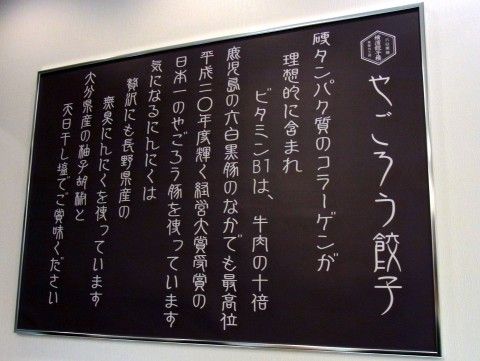 やごろう餃子
硬タンパク質のコラーゲンが
理想的に含まれ
ビタミンB1は、牛肉の十倍
鹿児島の六白黒豚のなかでも最高位
平成二〇年度輝く経営大賞受賞の
日本一のやごろう豚を使っています
気になるにんにくは
贅沢にも長野県産の
無臭にんにくを使っています
大分県産の柚子胡椒と
天日干し塩でご賞味ください